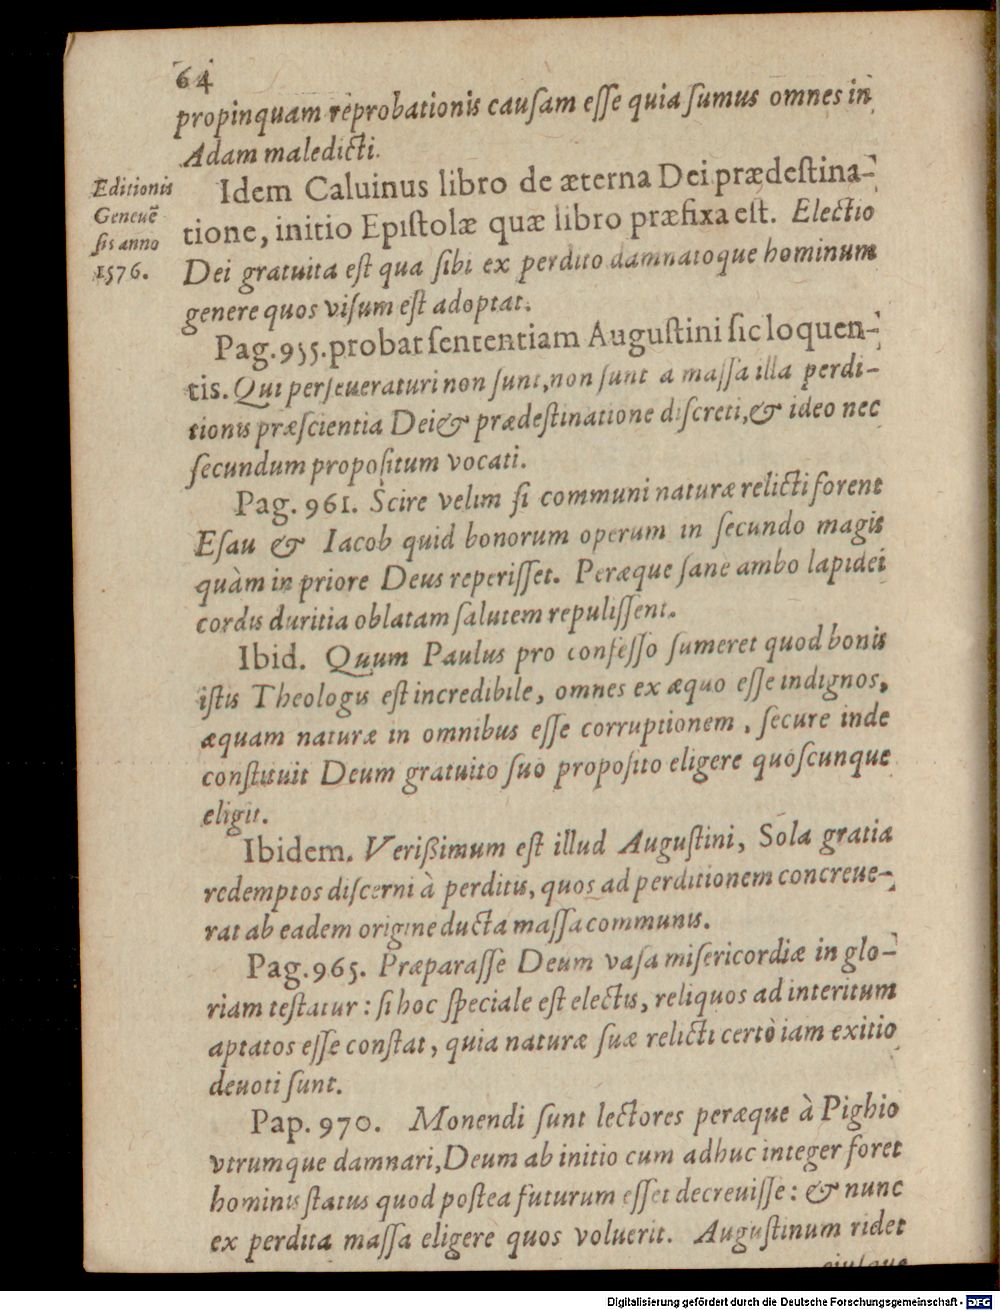 64
propinquam reprobationis causam esse quia sumus omnes in
Adam maledicti.
Editionis
Geneuẽ
sis anno
1576.
Idem Caluinus libro de æterna Dei prædestina-
tione, initio Epistolæ quæ libro præfixa est. Electio
Dei gratuita est qua sibi ex perdito damnatoque hominum
genere quos visum est adoptat.
Pag. 955. probat sententiam Augustini sic loquen-
tis. Qui perseueraturi non sunt, non sunt a massa illa perdi-
tionis præscientia Dei & prædestinatione discreti, & ideo nec
secundum propositum vocati.
Pag. 961. Scire velim si communi naturæ relicti forent
Esau & Iacob quid bonorum operum in secundo magis
quàm in priore Deus reperisset. Peræque sane ambo lapidei
cordis duritia oblatam salutem repulissent.
Ibid. Quum Paulus pro confesso sumeret quod bonis
istis Theologis est incredibile, omnes ex æquo esse indignos,
æquam naturæ in omnibus esse corruptionem, secure inde
constituit Deum gratuito suo proposito eligere quoscunque
eligit.
Ibidem. Verißimum est illud Augustini, Sola gratia
redemptos discerni à perditis, quos ad perditionem concreue-
rat ab eadem origine ducta massa communis.
Pag. 965. Præparasse Deum vasa misericordiæ in glo-
riam testatur: si hoc speciale est electis, reliquos ad interitum
aptatos esse constat, quia naturæ suæ relicti certò iam exitio
deuoti sunt.
Pap. 970. Monendi sunt lectores peræque à Pighio
vtrumque damnari, Deum ab initio cum adhuc integer foret
hominis status quod postea futurum esset decreuisse: & nunc
ex perdita massa eligere quos voluerit. Augustinum ridet
Digitalisierung gefördert durch die Deutsche Forschungsgemeinschaft - DFG